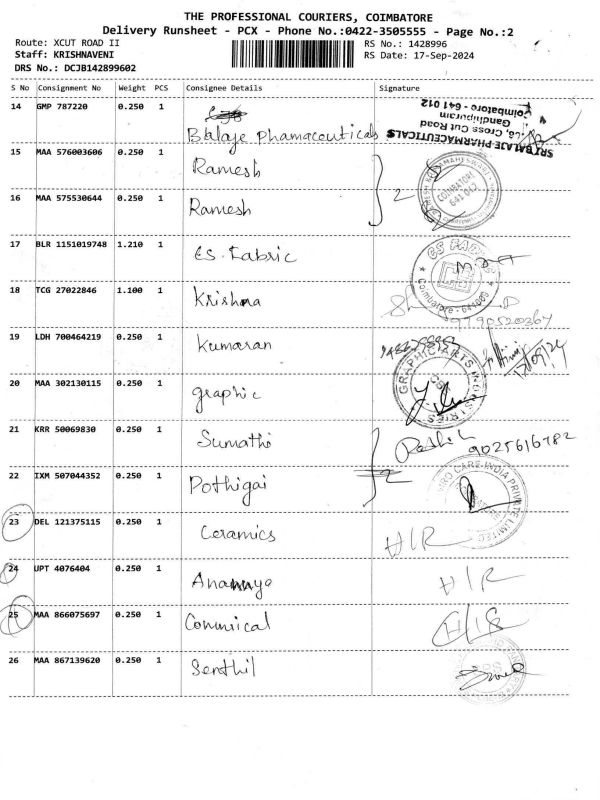 THE PROFESSIONAL COURIERS, COIMBATORE
Delivery Runsheet - PCX - Phone No.:0422-3505555 - Page No.:2
Route: XCUT ROAD II RS No.: 1428996
Staff: KRISHNAVENI RS Date: 17-Sep-2024
DRS No.: DCJB142899602
S No Consignment No Weight PCS Consignee Details Signature
14 GMP 787220 0.250 1 Balaje Phamaceuticals
SRI BALAJE PHARMACEUTICALS
Cross Cut Road
Gandhipuram
Coimbatore - 641 012
15 MAA 576003606 0.250 1 Ramesh
COIMBATORE
641 012
16 MAA 575530644 0.250 1 Ramesh 2
17 BLR 1151019748 1.210 1 ES. Fabric
ES FABRIC
Coimbatore - 641009
18 TCG 27022846 1.100 1 Krishna
9790520367
19 LDH 700464219 0.250 1 Kumaran
17/09/24
20 MAA 302130115 0.250 1 graphic
GRAPHIC ARTS INDUSTRIES
21 KRR 50069830 0.250 1 Sumathi
9025616782
22 IXM 507044352 0.250 1 Pothigai 2
CARE INDIA PRIVATE LIMITED
23 DEL 121375115 0.250 1 Ceramics H/R
24 UPT 4076404 0.250 1 Ananya H/R
25 MAA 866075697 0.250 1 Commical H/R
26 MAA 867139620 0.250 1 Senthil